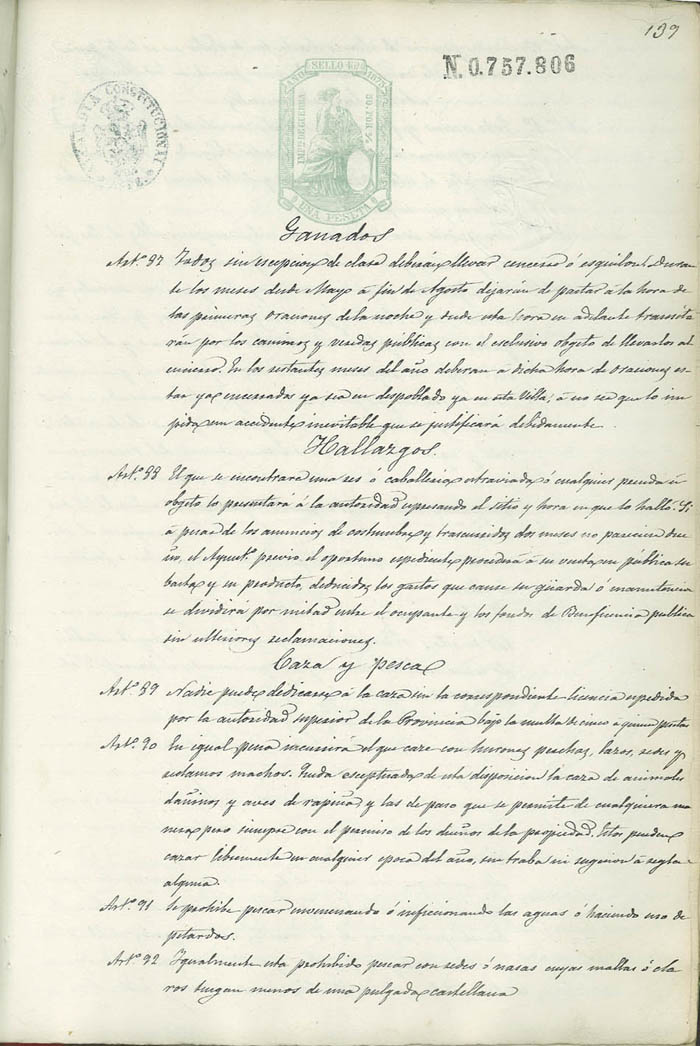 139
N. 0.757.806
ALCALDIA CONSTITUCIONAL
AÑO SELLO 1875
IMPto. DE GUERRA 50 POR %
UNA PESETA
Ganados
Art.º 87 Todos sin escepcion de clase deberán llevar cencerro ó esquilon. Duran
te los meses desde Mayo á fin de Agosto dejarán de pastar á la hora de
las primeras oraciones de la noche y desde esta hora en adelante transita
rán por los caminos y veredas públicas con el esclusivo objeto de llevarlos al
encierro. En los restantes meses del año deberan á dicha hora de oraciones es-
tar ya encerrados ya sea en despoblado ya en esta Villa, á no ser que lo im
pida un accidente inevitable que se justificará debidamente.
Hallazgos.
Art.º 88 El que se encontrara una res ó caballeria extraviada ó cualquier prenda ú
objeto lo presentará á la autoridad espresando el sitio y hora en que lo halló. Si
á pesar de los anuncios de costumbre y trascurridos dos meses no parecien due
ño, el Ayunt.º previo el oportuno espediente procederá á su venta en pública su
basta y su producto, deducidos los gastos que cause su guarda ó manutencia
se dividirá por mitad entre el ocupante y los fondos de Beneficencia publica
sin ulteriores reclamaciones.
Caza y pesca
Art.º 89 Nadie puede dedicarse á la caza sin la correspondiente licencia espedida
por la autoridad superior de la Provincia bajo la multa de cinco á quince pesetas
Art.º 90 En igual pena incurrirá el que caze con hurones perchas, lazos, redes y
reclamos machos. Queda esceptuada de esta disposicion la caza de animales
dañinos y aves de rapiña y las de paso que se permite de cualquiera ma
nera pero siempre con el permiso de los dueños de la propiedad. Estos pueden
cazar libremente en cualquier epoca del año, sin traba ni sugecion á regla
alguna.
Art.º 91 Se prohibe pescar envenenando ó inficionando las aguas ó haciendo uso de
petardos.
Art.º 92 Igualmente esta prohibido pescar con redes ó nasas cuyas mallas ó cla
ros tengan menos de una pulgada castellana